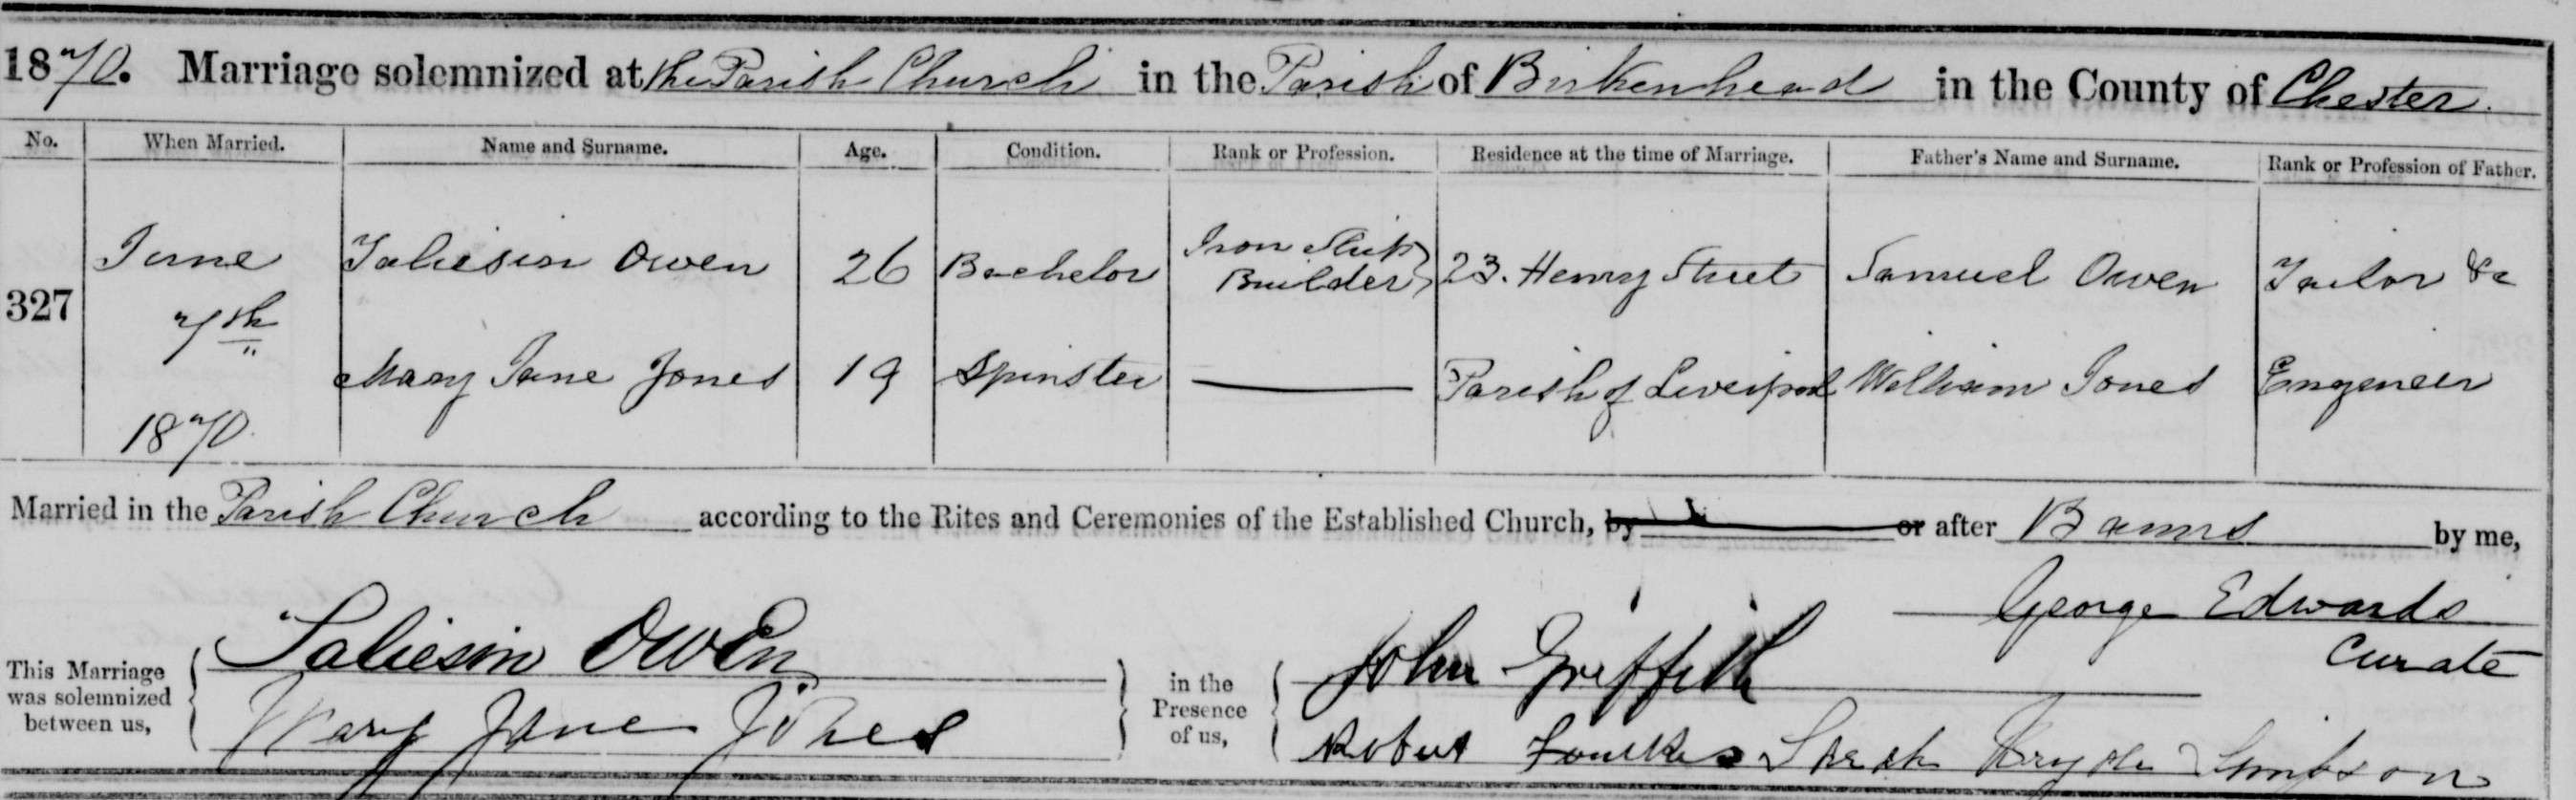 1870. Marriage solemnized at the Parish Church in the Parish of Birkenhead in the County of Chester.
No. When Married. Name and Surname. Age. Condition. Rank or Profession. Residence at the time of Marriage. Father's Name and Surname. Rank or Profession of Father.
327 June 7th 1870.
Taliesin Owen 26 Bachelor Iron Ship Builder 23. Henry Street Samuel Owen Tailor &c
Mary Jane Jones 19 Spinster Parish of Liverpool William Jones Engineer
Married in the Parish Church according to the Rites and Ceremonies of the Established Church, by or after Banns by me,
George Edwards
Curate
This Marriage was solemnized between us,
Taliesin Owen
Mary Jane Jones
in the Presence of us,
John Griffith
Robert Foulkes Sarah Simpson